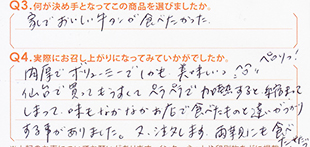 Q3.何が決め手となってこの商品を選びましたか。
家でおいしい牛タンが食べたかった。
Q4.実際にお召し上がりになってみていかがでしたか。
肉厚でボリューミーでしかも美味しい♡♡ ペロリっ!
仙台で買ってもうすくてペラペラで加熱すると縮まって
しまって、味もなかなかお店で食べたものと違いがっかり
する事がありました。又、注文します。両親にも食べ
たい